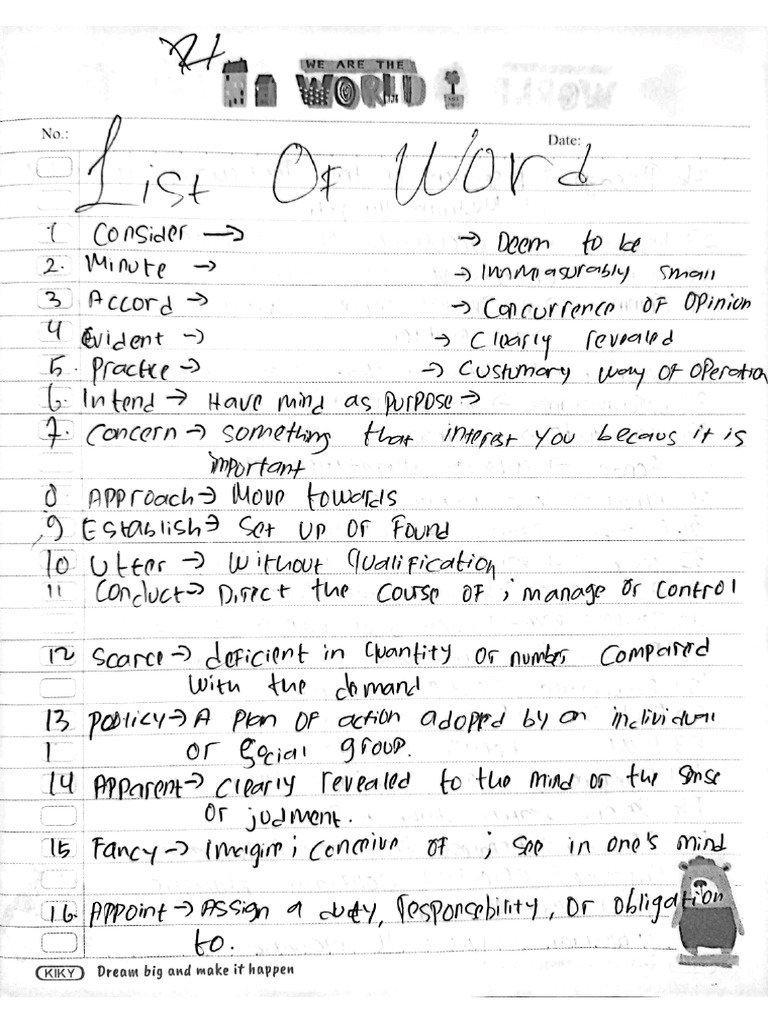 WE ARE THE
WORLD
No.:
Date:
List Of Word
1 Consider → → Deem to be
2. Minute → → Immeasurably small
3 Accord → → Concurrence of Opinion
4 Evident → → Clearly revealed
5. Practice → → Custumary way of Operation
6. Intend → Have mind as purpose →
7. Concern → something that interest you becaus it is
important
8 Approach → Move towards
9 Establish → Set up or Found
10 Utter → Without Qualification
11 Conduct → Direct the course of ; manage or control
12 Scarce → deficient in Quantity or number compared
with the demand
13 Policy → A plan of action adopped by an individual
1 or social group.
14 Apparent → clearly revealed to the mind or the sense
or judment.
15 Fancy → Imagine ; conceive of ; see in one's mind
16. Appoint → Assign a duty, responsebility, or obligation
to.
KIKY Dream big and make it happen